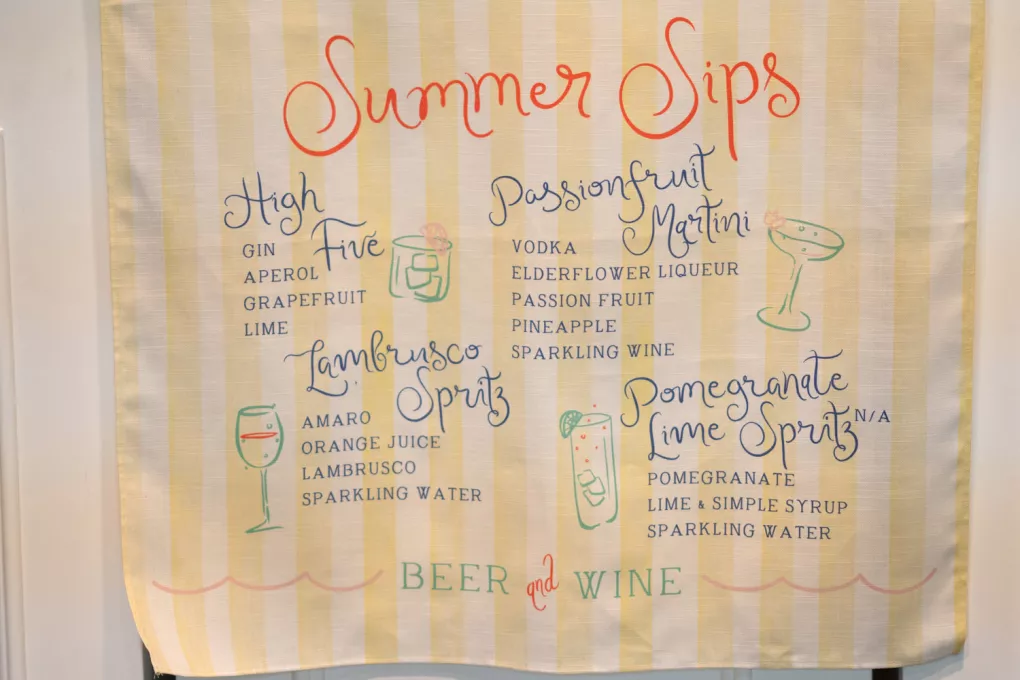 Summer Sips
High
Five
GIN
APEROL
GRAPEFRUIT
LIME
Passionfruit
Martini
VODKA
ELDERFLOWER LIQUEUR
PASSION FRUIT
PINEAPPLE
SPARKLING WINE
Lambrusco
Spritz
AMARO
ORANGE JUICE
LAMBRUSCO
SPARKLING WATER
Pomegranate
Lime Spritz N/A
POMEGRANATE
LIME & SIMPLE SYRUP
SPARKLING WATER
BEER and WINE